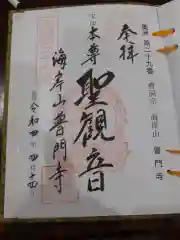 奉拝
奥州第二十九番 曹洞宗 海岸山 普門寺
本尊 聖観音
海岸山普門寺
令和四年四月十四日